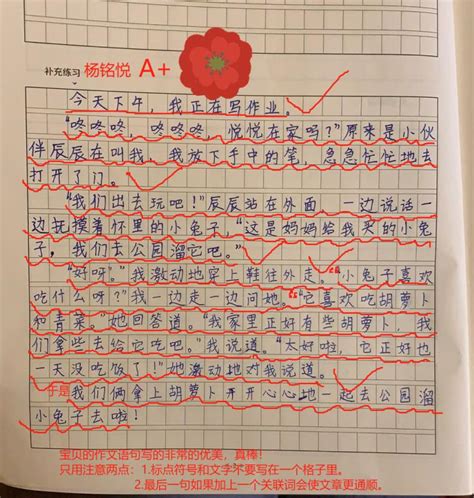 补充练习 杨铭悦 A+
今天下午，我正在写作业。
“咚咚咚，咚咚咚，悦悦在家吗？”原来是小伙
伴辰辰在叫我，我放下手中的笔，急急忙忙地去
打开了门。
“我们出去玩吧！”辰辰站在外面，一边说话一
边抚摸着怀里的小兔子，“这是妈妈给我买的小兔
子，我们去公园溜它吧。”
“好呀。”我激动地穿上鞋往外走。“小兔子喜欢
吃什么呀？”我一边走一边问她。“它喜欢吃胡萝卜
和青菜。”她回答道。“我家里正好有些胡萝卜，我
们拿些去给它吃吧。”我说道。“太好啦，它正好也
一天没吃饭了！”她激动地对我说道。
于是我们俩拿上胡萝卜开开心心地一起去公园溜
小兔子去啦！
宝贝的作文语句写的非常的优美，真棒！
只用注意两点：1.标点符号和文字不要写在一个格子里。
2.最后一句如果加上一个关联词会使文章更通顺。